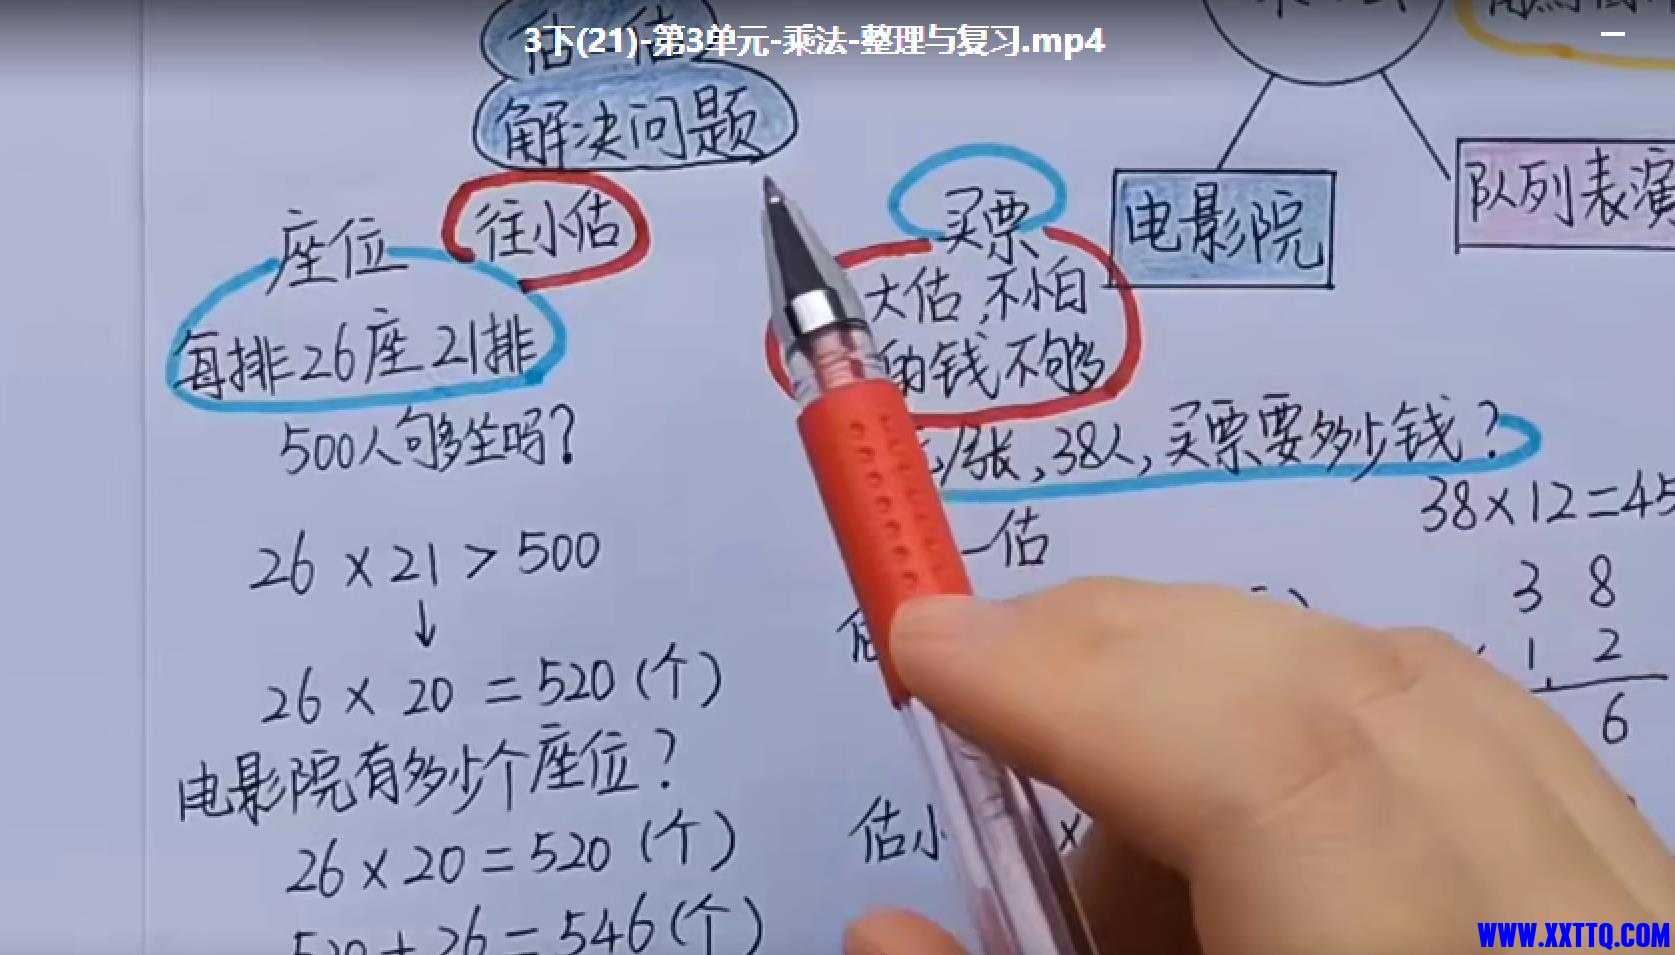 3下(21)-第3单元-乘法-整理与复习.mp4
估一估
解决问题
座位
往小估
每排26座21排
500人够坐吗？
26 × 21 > 500
↓
26 × 20 = 520 (个)
电影院有多少个座位？
26 × 20 = 520 (个)
520 + 26 = 546 (个)
买票
大估,不怕
的钱不够
/张,38人,买票要多少钱？
一估
估
估小
×
电影院
队列表演
38×12=45
3 8
1 2
6
WWW.XXTTQ.COM